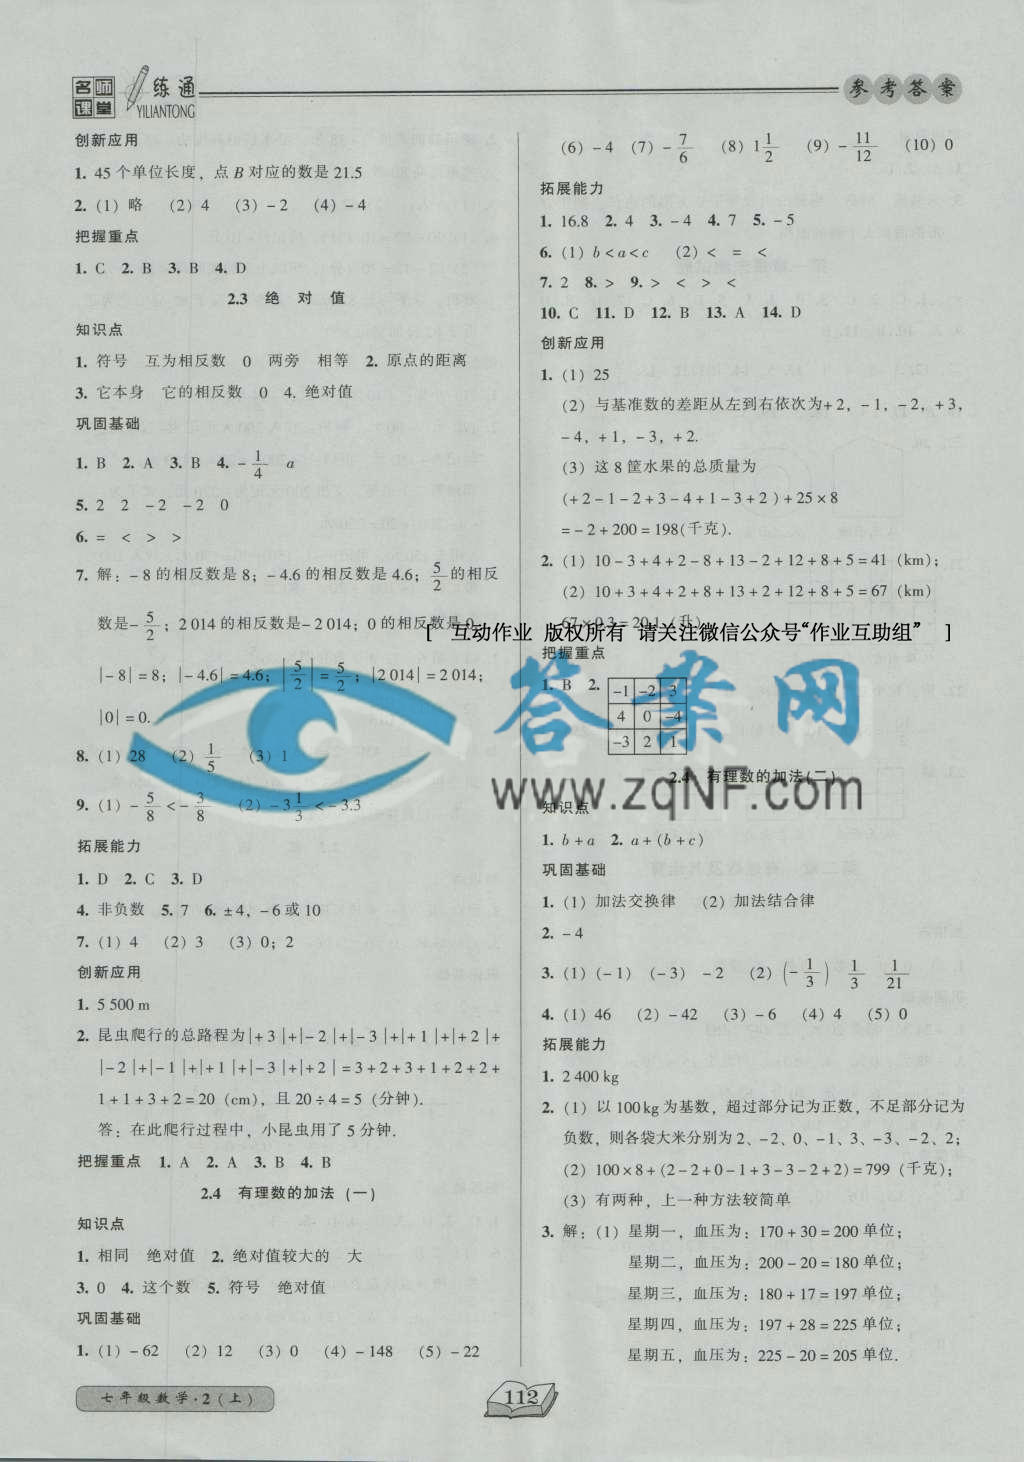 名师课堂 一练通 YILIANTONG
参考答案
创新应用
1. 45个单位长度，点B对应的数是21.5
2. (1) 略 (2) 4 (3) -2 (4) -4
把握重点
1. C 2. B 3. B 4. D
2.3 绝 对 值
知识点
1. 符号 互为相反数 0 两旁 相等 2. 原点的距离
3. 它本身 它的相反数 0 4. 绝对值
巩固基础
1. B 2. A 3. B 4. -1/4 a
5. 2 2 -2 -2 0
6. = < > >
7. 解：-8的相反数是8；-4.6的相反数是4.6；5/2的相反
数是-5/2；2 014的相反数是-2 014；0的相反数是0.
|-8|=8；|-4.6|=4.6；|5/2|=5/2；|2 014|=2 014；
|0|=0.
8. (1) 28 (2) 1/5 (3) 1
9. (1) -5/8<-3/8 (2) -3 1/3<-3.3
拓展能力
1. D 2. C 3. D
4. 非负数 5. 7 6. ±4，-6或10
7. (1) 4 (2) 3 (3) 0；2
创新应用
1. 5 500 m
2. 昆虫爬行的总路程为|+3|+|-2|+|-3|+|+1|+|+2|+
|-2|+|-1|+|+1|+|-3|+|+2|=3+2+3+1+2+2+
1+1+3+2=20（cm)，且20÷4=5（分钟).
答：在此爬行过程中，小昆虫用了5分钟.
把握重点 1. A 2. A 3. B 4. B
2.4 有理数的加法（一）
知识点
1. 相同 绝对值 2. 绝对值较大的 大
3. 0 4. 这个数 5. 符号 绝对值
巩固基础
1. (1) -62 (2) 12 (3) 0 (4) -148 (5) -22
(6) -4 (7) -7/6 (8) 1 1/2 (9) -11/12 (10) 0
拓展能力
1. 16.8 2. 4 3. -4 4. 7 5. -5
6. (1) b<a<c (2) < = <
7. 2 8. > 9. > < > <
10. C 11. D 12. B 13. A 14. D
创新应用
1. (1) 25
(2) 与基准数的差距从左到右依次为+2，-1，-2，+3，
-4，+1，-3，+2.
(3) 这8筐水果的总质量为
(+2-1-2+3-4+1-3+2)+25×8
=-2+200=198(千克).
2. (1) 10-3+4+2-8+13-2+12+8+5=41（km)；
(2) 10+3+4+2+8+13+2+12+8+5=67（km)
67×0.3=20.1（升)
[ 互动作业 版权所有 请关注微信公众号“作业互助组” ]
把握重点
1. B 2.
-1 -2 3
4 0 -4
-3 2 1
答案网
www.zqNF.com
2.4 有理数的加法(二)
知识点
1. b+a 2. a+(b+c)
巩固基础
1. (1) 加法交换律 (2) 加法结合律
2. -4
3. (1) (-1) (-3) -2 (2) (-1/3) 1/3 1/21
4. (1) 46 (2) -42 (3) -6 (4) 4 (5) 0
拓展能力
1. 2 400 kg
2. (1) 以100 kg为基数，超过部分记为正数，不足部分记为
负数，则各袋大米分别为2、-2、0、-1、3、-3、-2、2；
(2) 100×8+(2-2+0-1+3-3-2+2)=799（千克)；
(3) 有两种，上一种方法较简单
3. 解：(1) 星期一，血压为：170+30=200单位；
星期二，血压为：200-20=180单位；
星期三，血压为：180+17=197单位；
星期四，血压为：197+28=225单位；
星期五，血压为：225-20=205单位.
七年级数学·2（上）
112